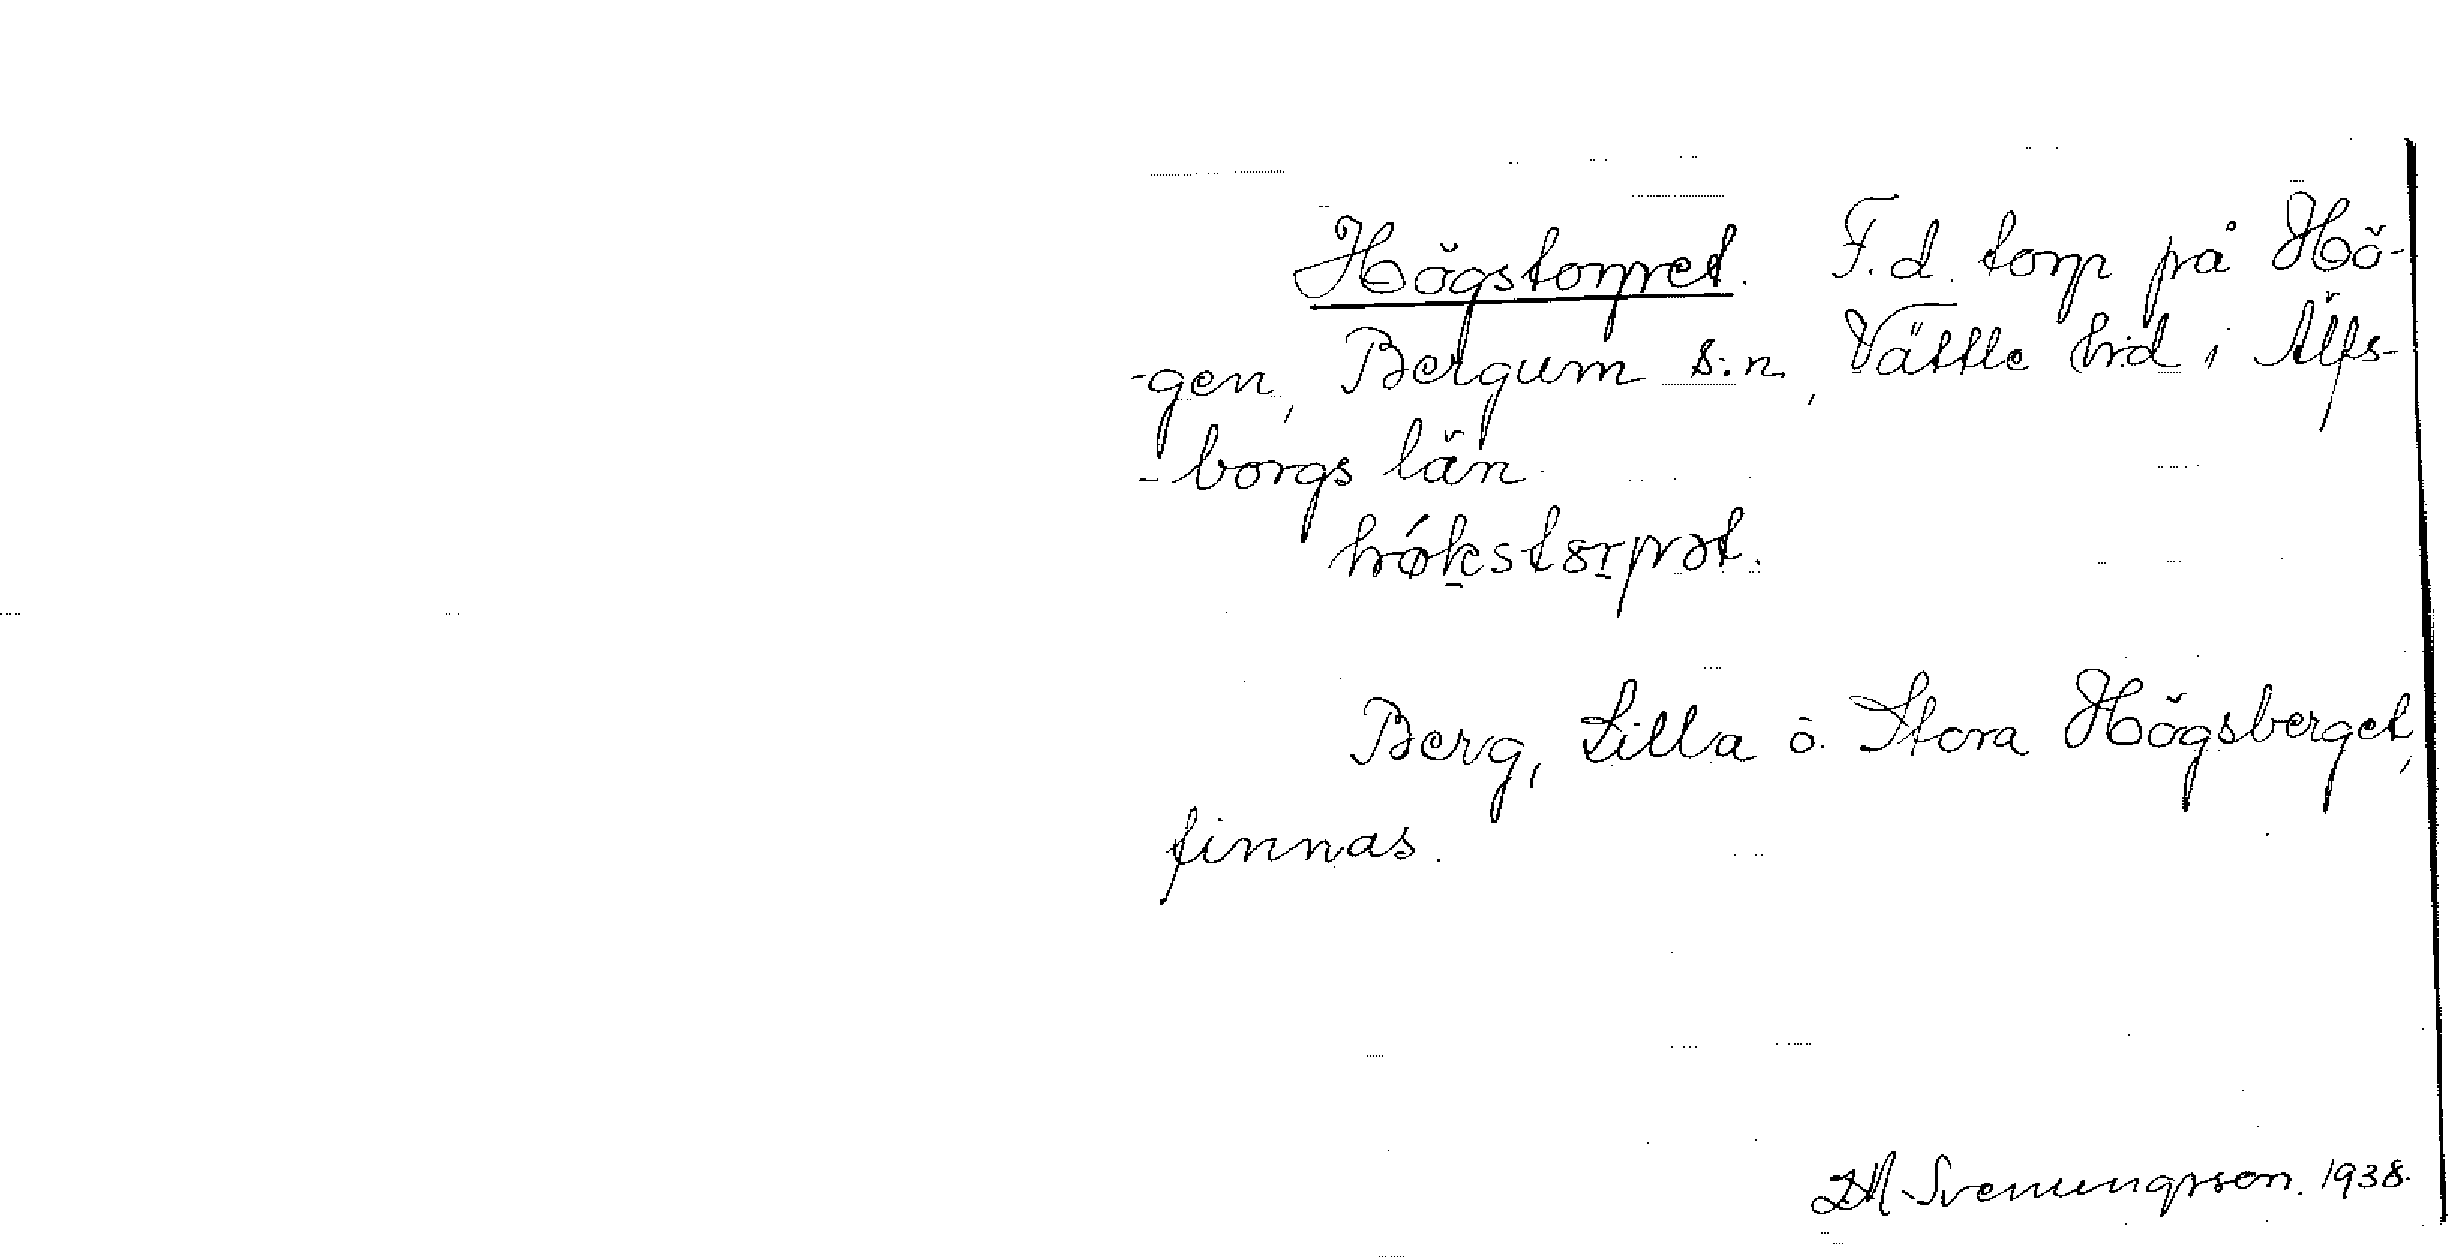 Högstorpet. F.d. torp på Hö-
-gen, Bergum s:n, Vättle hrd i Älfs-
-borgs län
Berg, Lilla o. Stora Högsberget,
finnas.
Svenungsson. 1938.